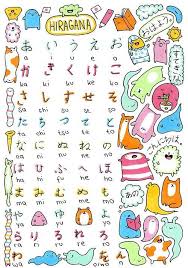 HIRAGANA
あ い う え お
a i u e o
か き く け こ
ka ki ku ke ko
さ し す せ そ
sa shi su se so
た ち つ て と
ta chi tsu te to
な に ぬ ね の
na ni nu ne no
は ひ ふ へ ほ
ha hi fu he ho
ま み む め も
ma mi mu me mo
や ゆ よ
ya yu yo
ら り る れ ろ
ra ri ru re ro
こんにちは